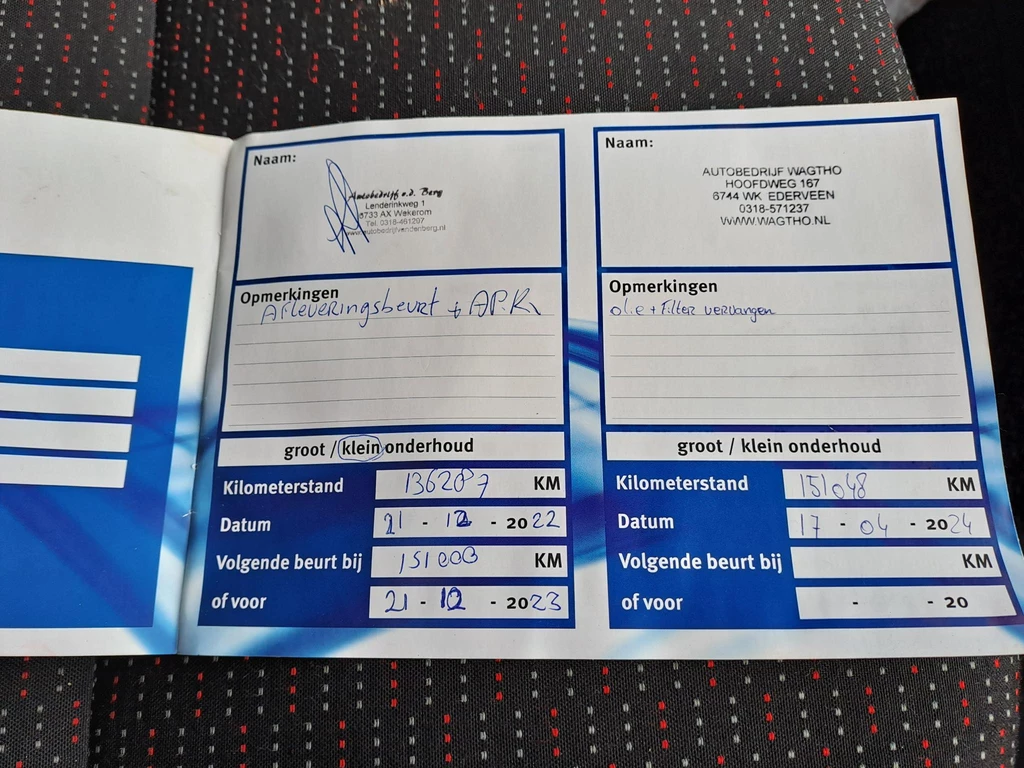 Naam:
Autobedrijf v.d. Berg
Lenderinkweg 1
6733 AX Wekerom
Tel. 0318-461297
www.autobedrijfvandenberg.nl
Opmerkingen
Afleveringsbeurt + APK
groot / klein onderhoud
Kilometerstand 136287 KM
Datum 21 - 12 - 2022
Volgende beurt bij 151000 KM
of voor 21 - 12 - 2023
Naam:
AUTOBEDRIJF WAGTHO
HOOFDWEG 167
6744 WK EDERVEEN
0318-571237
WWW.WAGTHO.NL
Opmerkingen
olie + filter vervangen
groot / klein onderhoud
Kilometerstand 151048 KM
Datum 17 - 04 - 2024
Volgende beurt bij KM
of voor - - 20